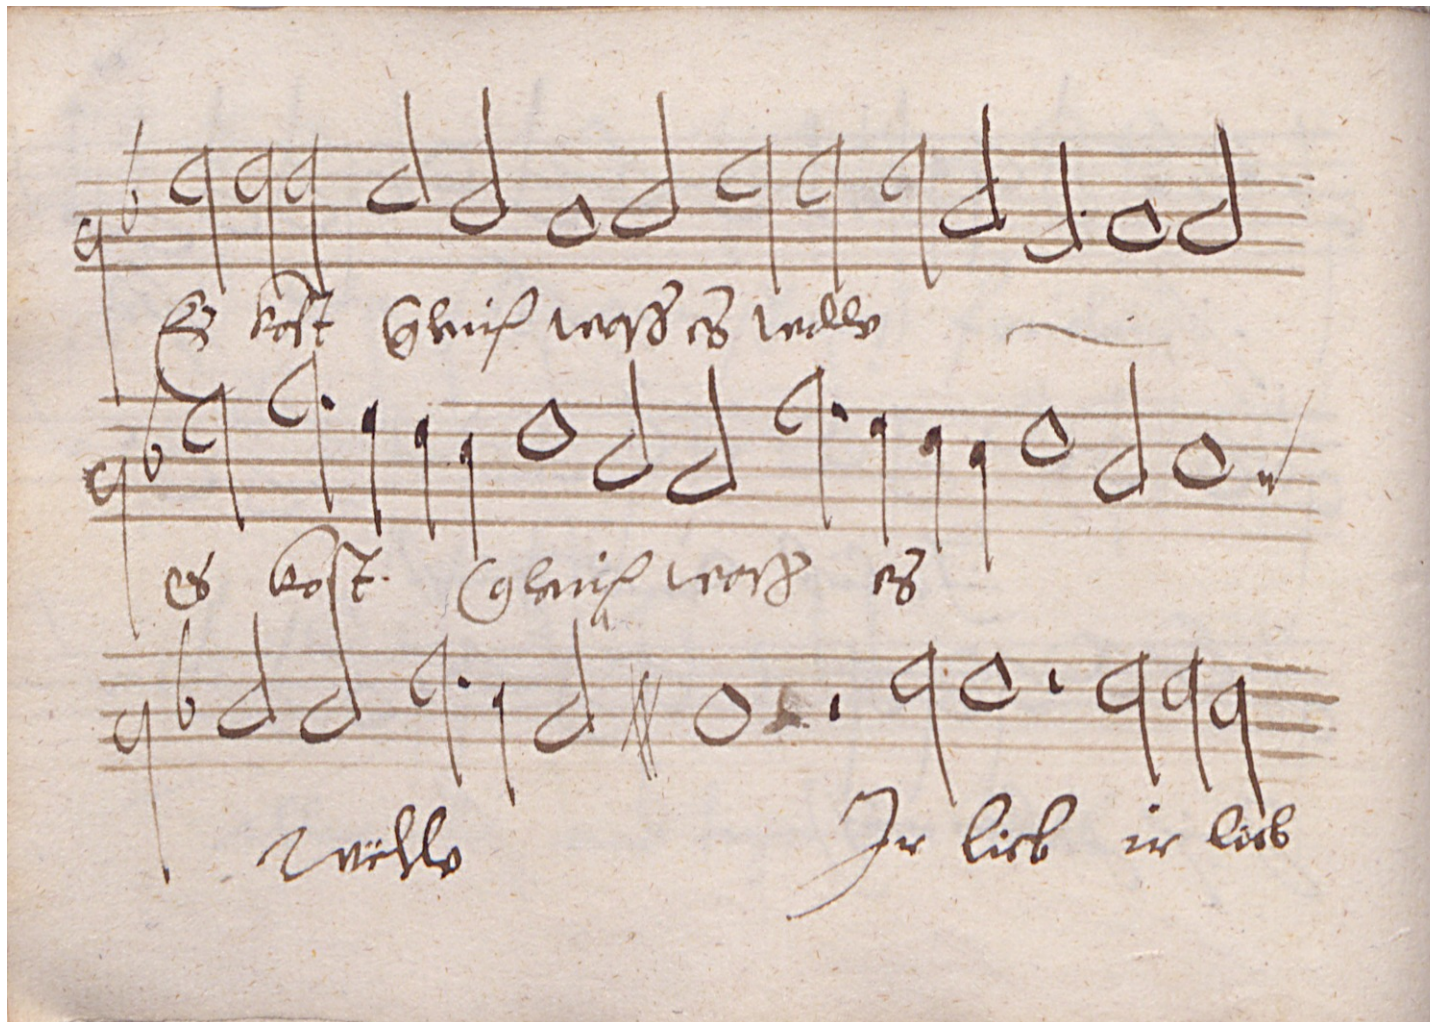 Es kost gleich wass es welle
es kost gleich wass es
welle Ir lieb ir lieb